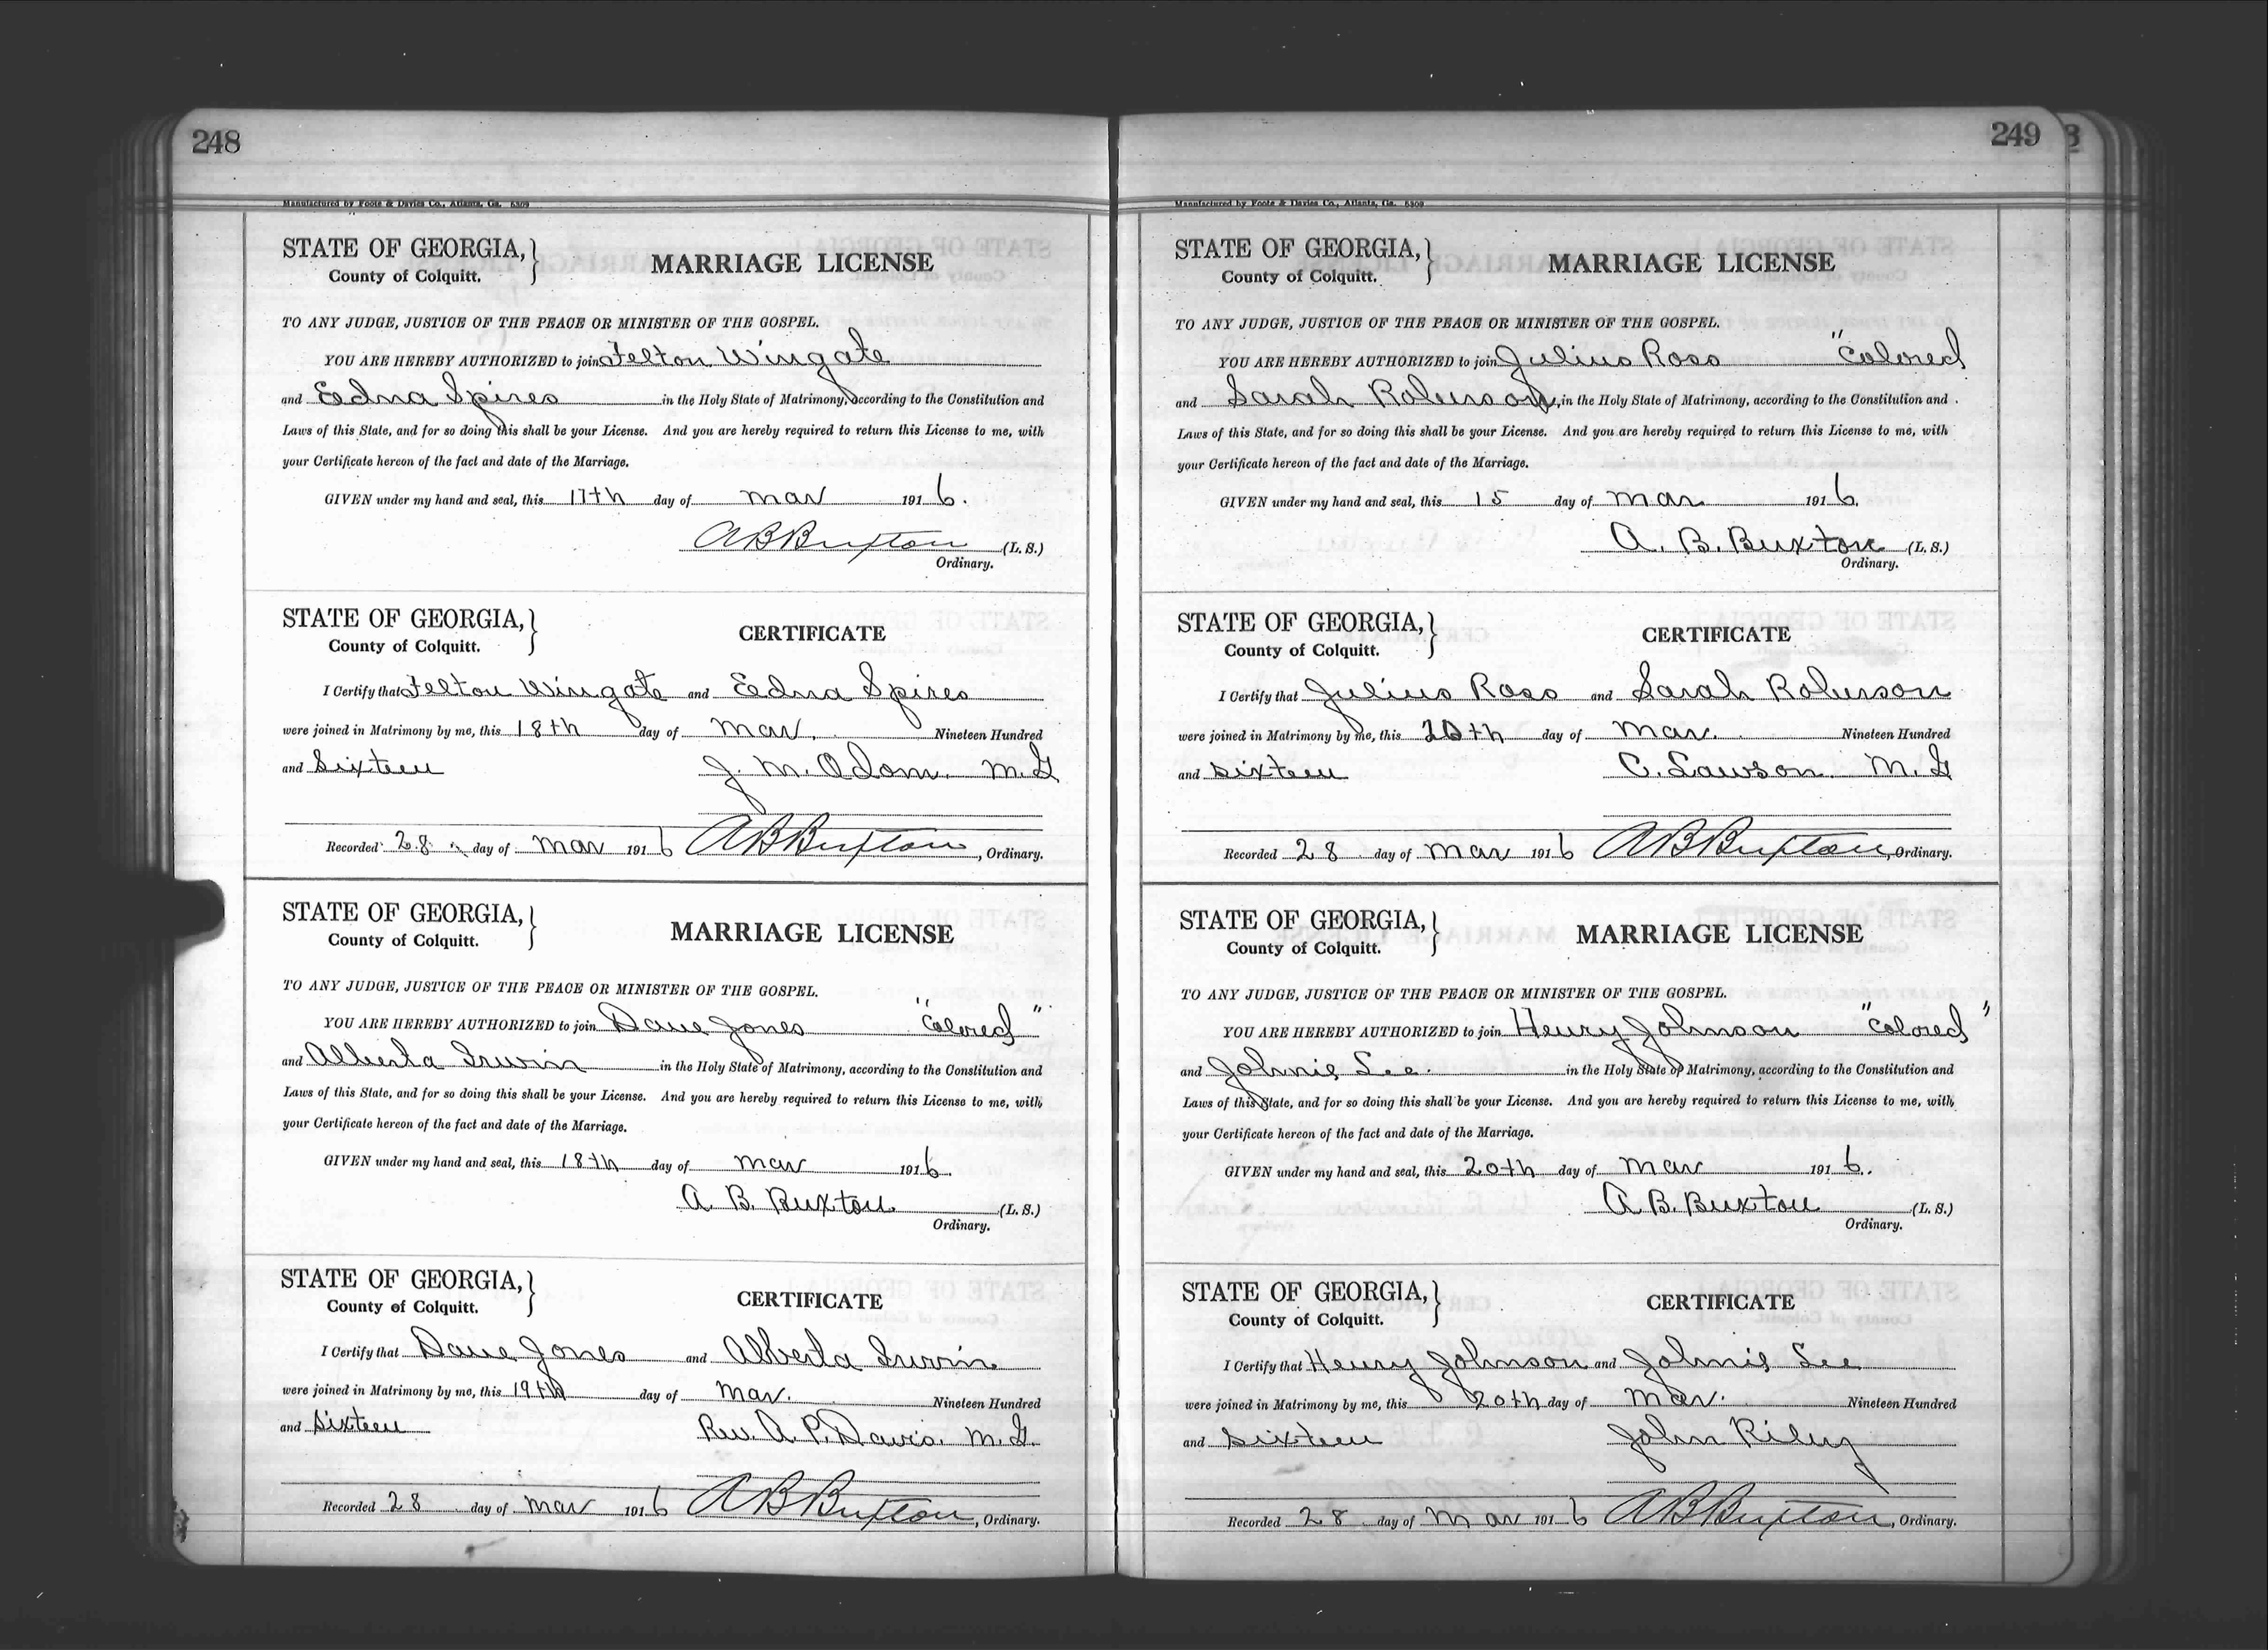 248
Manufactured by Foote & Davies Co., Atlanta, Ga. 5309
STATE OF GEORGIA,
County of Colquitt.
MARRIAGE LICENSE
TO ANY JUDGE, JUSTICE OF THE PEACE OR MINISTER OF THE GOSPEL.
YOU ARE HEREBY AUTHORIZED to join Felton Wingate
and Edna Spires in the Holy State of Matrimony, according to the Constitution and
Laws of this State, and for so doing this shall be your License. And you are hereby required to return this License to me, with
your Certificate hereon of the fact and date of the Marriage.
GIVEN under my hand and seal, this 17th day of Mar 1916.
A B Buxton (L. S.)
Ordinary.
STATE OF GEORGIA,
County of Colquitt.
CERTIFICATE
I Certify that Felton Wingate and Edna Spires
were joined in Matrimony by me, this 18th day of Mar. Nineteen Hundred
and Sixteen J. M. Odom. M. G
Recorded 28 day of Mar 1916 A B Buxton, Ordinary.
STATE OF GEORGIA,
County of Colquitt.
MARRIAGE LICENSE
TO ANY JUDGE, JUSTICE OF THE PEACE OR MINISTER OF THE GOSPEL.
YOU ARE HEREBY AUTHORIZED to join Dave Jones "Colored"
and Alberta Irwin in the Holy State of Matrimony, according to the Constitution and
Laws of this State, and for so doing this shall be your License. And you are hereby required to return this License to me, with
your Certificate hereon of the fact and date of the Marriage.
GIVEN under my hand and seal, this 18th day of Mar 1916.
A. B. Buxton (L. S.)
Ordinary.
STATE OF GEORGIA,
County of Colquitt.
CERTIFICATE
I Certify that Dave Jones and Alberta Irwin
were joined in Matrimony by me, this 19th day of Mar. Nineteen Hundred
and Sixteen Rev. A. P. Davis. M. G.
Recorded 28 day of Mar 1916 A B Buxton, Ordinary.
249
Manufactured by Foote & Davies Co., Atlanta, Ga. 5309
STATE OF GEORGIA,
County of Colquitt.
MARRIAGE LICENSE
TO ANY JUDGE, JUSTICE OF THE PEACE OR MINISTER OF THE GOSPEL.
YOU ARE HEREBY AUTHORIZED to join Julius Ross "Colored
and Sarah Roberson, in the Holy State of Matrimony, according to the Constitution and
Laws of this State, and for so doing this shall be your License. And you are hereby required to return this License to me, with
your Certificate hereon of the fact and date of the Marriage.
GIVEN under my hand and seal, this 15 day of Mar 1916.
A. B. Buxton (L. S.)
Ordinary.
STATE OF GEORGIA,
County of Colquitt.
CERTIFICATE
I Certify that Julius Ross and Sarah Roberson
were joined in Matrimony by me, this day of Mar. Nineteen Hundred
and Sixteen C. Lawson. M. G
Recorded 28 day of Mar 1916 A B Buxton, Ordinary.
STATE OF GEORGIA,
County of Colquitt.
MARRIAGE LICENSE
TO ANY JUDGE, JUSTICE OF THE PEACE OR MINISTER OF THE GOSPEL.
YOU ARE HEREBY AUTHORIZED to join Henry Johnson "Colored"
and Johnie Lee. in the Holy State of Matrimony, according to the Constitution and
Laws of this State, and for so doing this shall be your License. And you are hereby required to return this License to me, with
your Certificate hereon of the fact and date of the Marriage.
GIVEN under my hand and seal, this 20th day of Mar 1916.
A B. Buxton (L. S.)
Ordinary.
STATE OF GEORGIA,
County of Colquitt.
CERTIFICATE
I Certify that Henry Johnson and Johnie Lee
were joined in Matrimony by me, this 20th day of Mar. Nineteen Hundred
and Sixteen John Riley
Recorded 28 day of Mar 1916 A B Buxton, Ordinary.